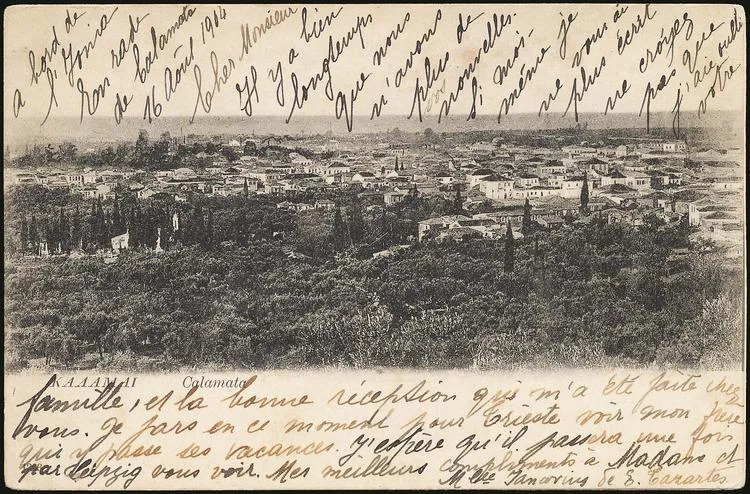 à bord de
l'Ionia
En rade
de Calamata
16 Août 1904
Cher Monsieur
Il y a bien
longtemps
que nous
n'avons
plus de
nouvelles.
Si moi-
même je
ne vous ai
plus écrit
ne croyez
pas que
j'aie oublié
votre
ΚΑΛΑΜΑΙ Calamata
famille, et la bonne réception qui m'a été faite chez
vous. Je pars en ce moment pour Trieste voir mon frère
qui y passe ses vacances. J'espère qu'il passera une fois
par Leipzig vous voir. Mes meilleurs compliments à Madame et
Mlle de E.